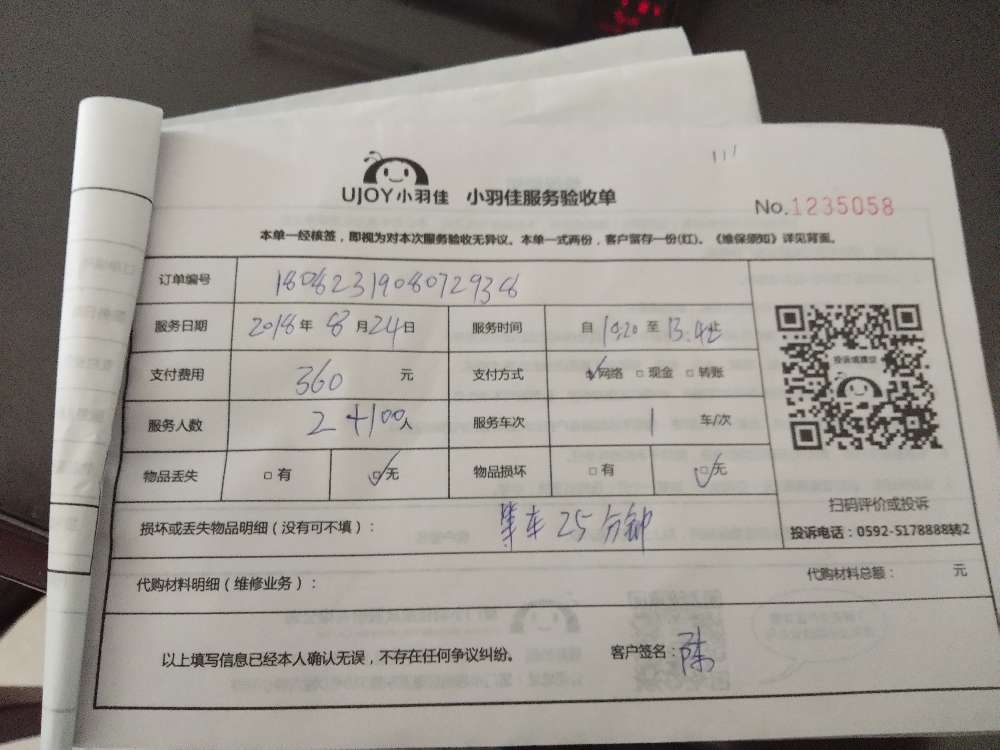 111
UJOY小羽佳 小羽佳服务验收单
No.1235058
本单一经核签，即视为对本次服务验收无异议。本单一式两份，客户留存一份(红)。《维保须知》详见背面。
订单编号 1808231908072938
服务日期 2018年8月24日 服务时间 自 至13.42止
支付费用 360元 支付方式 ☑网络 □现金 □转账
服务人数 2+100人 服务车次 1 车/次
物品丢失 □有 ☑无 物品损坏 □有 ☑无
投诉或建议
扫码评价或投诉
投诉电话：0592-5178888转2
损坏或丢失物品明细（没有可不填）： 等车25分钟
代购材料明细（维修业务）： 代购材料总额： 元
以上填写信息已经本人确认无误，不存在任何争议纠纷。 客户签名：陈